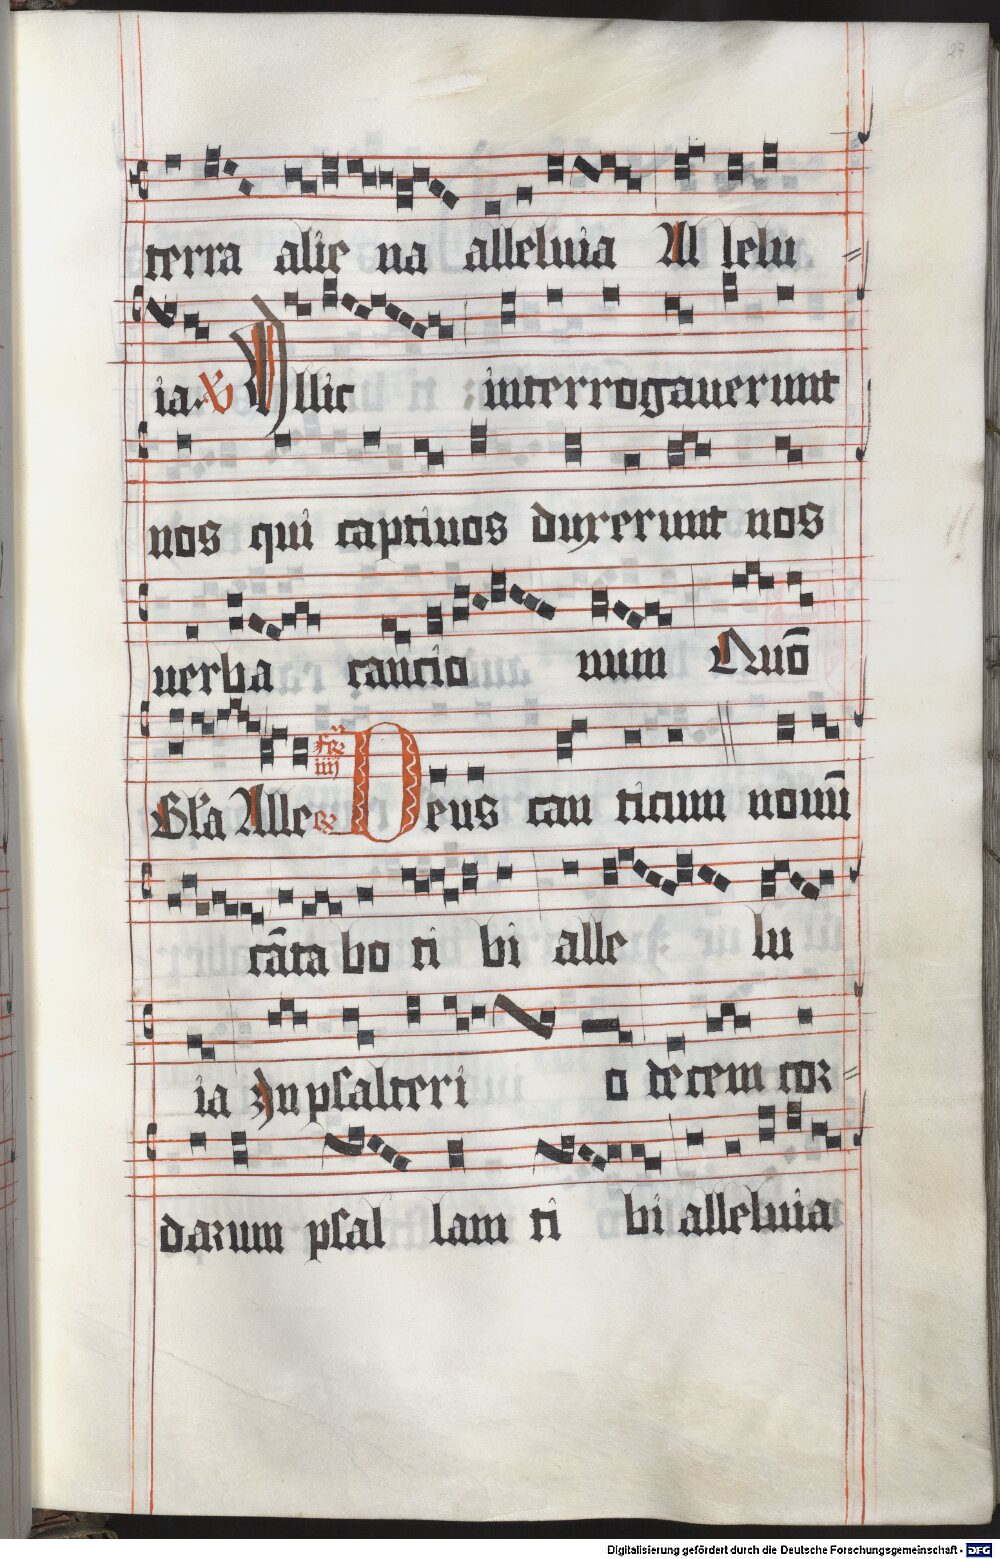 27
terra alie na alleluia Al lelu
ia. ℣ Illic interrogauerunt
nos qui captiuos duxerunt nos
uerba cancio num Quō
Gl'a Alle fr̄ iiij ℟ Deus can ticum nouū
cāta bo ti bi alle lu
ia In psalteri o decem cor
darum psal lam ti bi alleluia
Digitalisierung gefördert durch die Deutsche Forschungsgemeinschaft - DFG